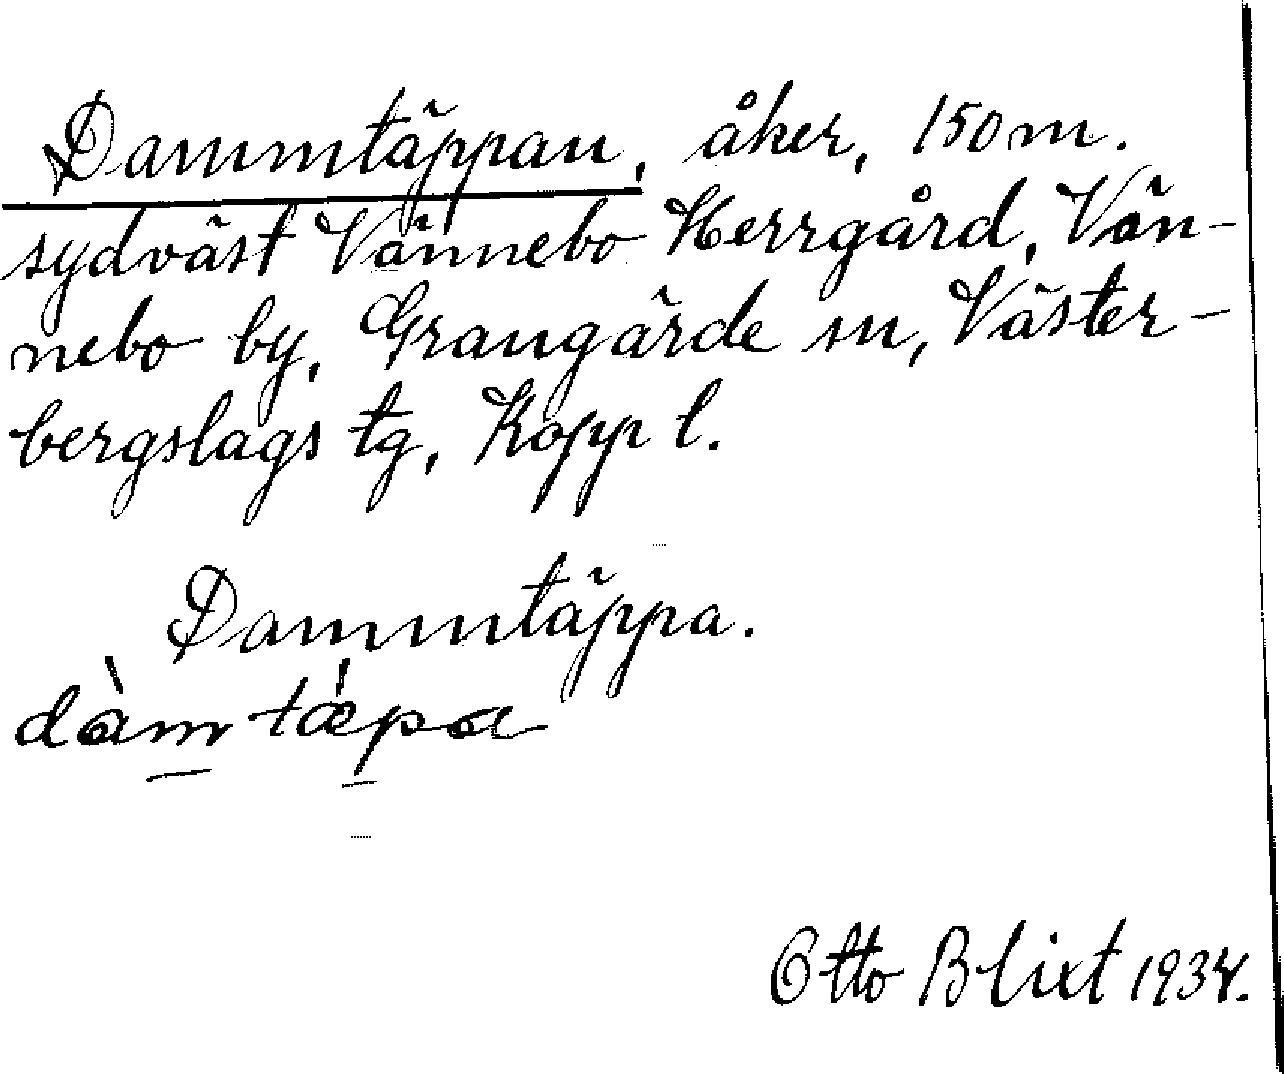 Dammtäppan, åker, 150 m.
sydväst Vännebo Herrgård, Vän-
nebo by, Grangärde sn, Väster-
bergslags tg, Kopp l.
Dammtäppa.
dàmtǽpa
Otto Blixt 1934.